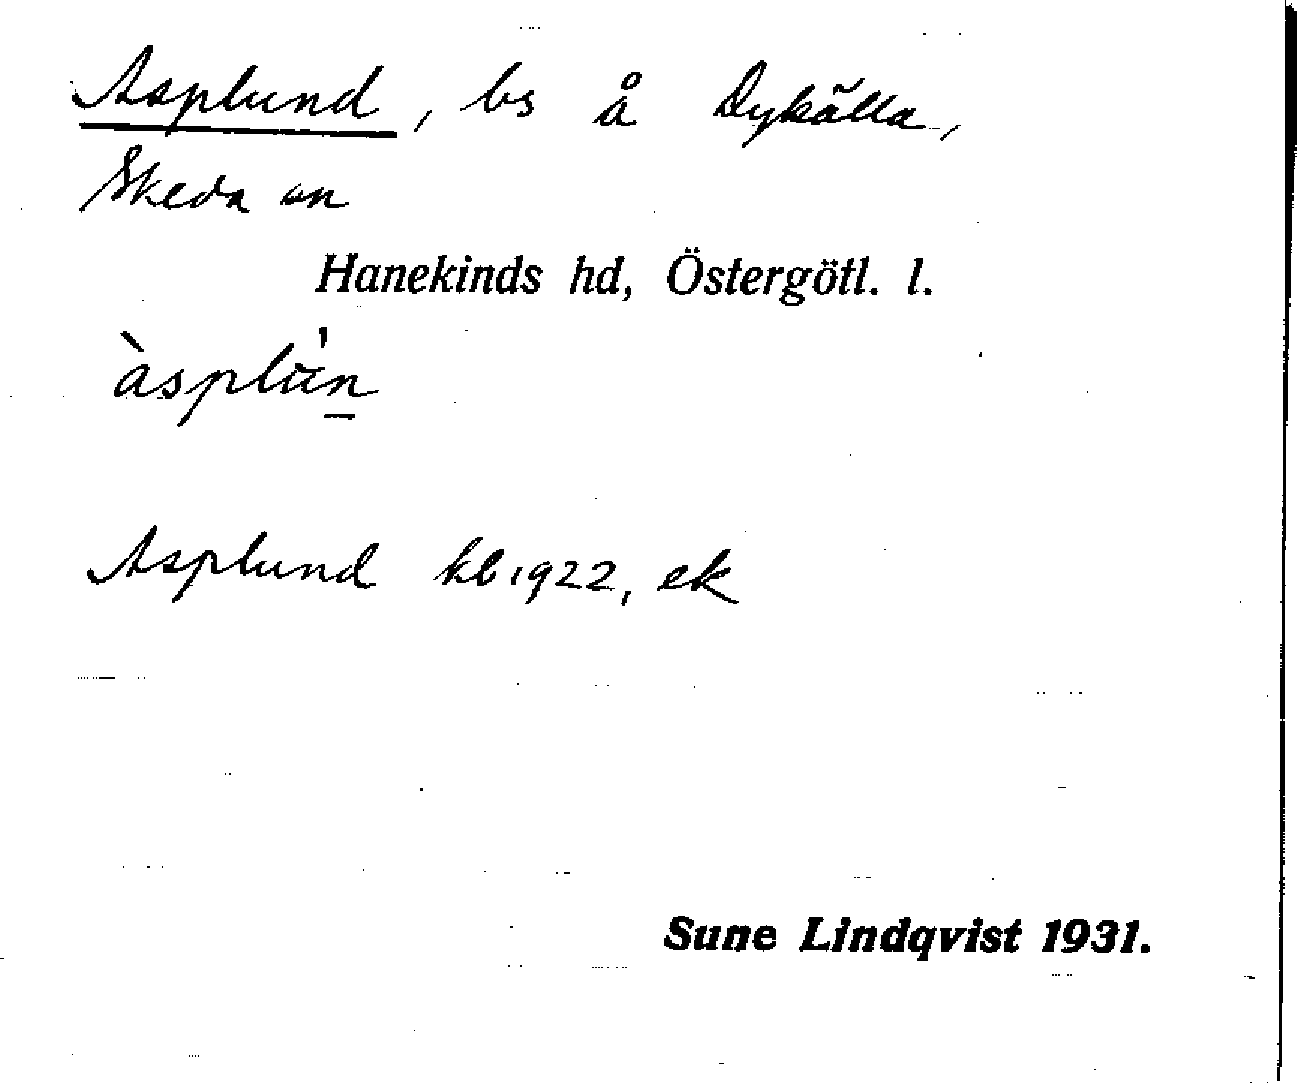 Asplund, bs å Dykälla,
Skeda sn
Hanekinds hd, Östergötl. l.
àsplu̇̀n̲
Asplund kb 1922, ek
Sune Lindqvist 1931.